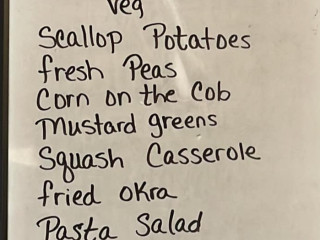 Veg
Scallop Potatoes
fresh Peas
Corn on the Cob
Mustard greens
Squash Casserole
fried okra
Pasta Salad